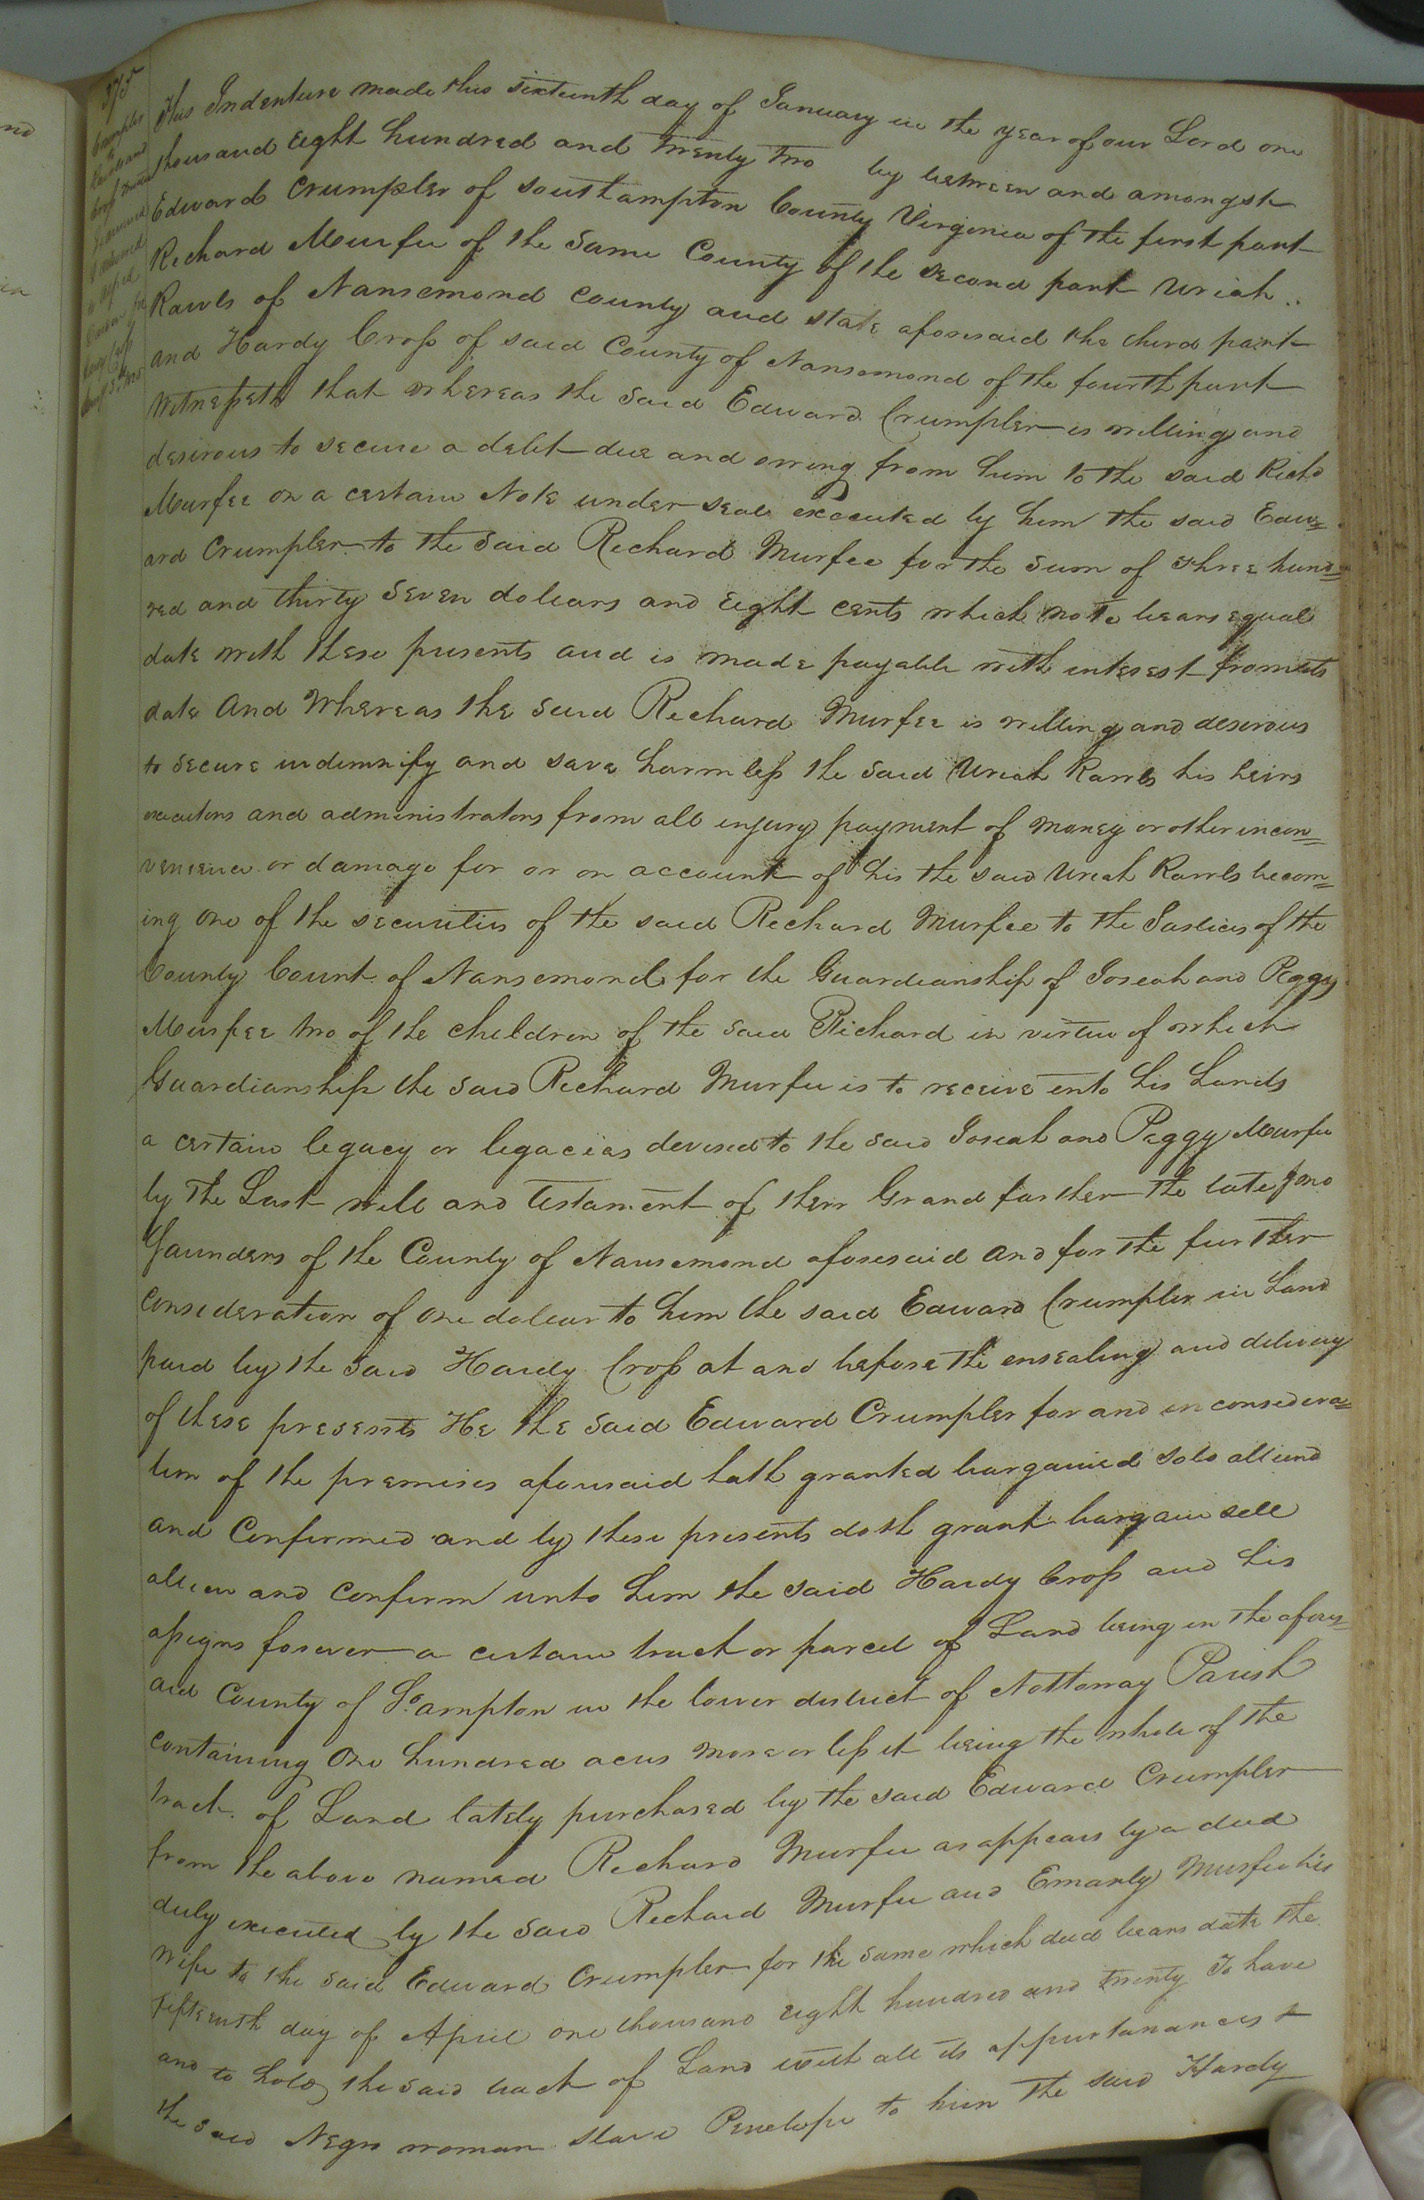 375
Crumpler
to
Rawls and
Cross Deed
Examined
& delivered
This Indenture made this sixteenth day of January in the year of our Lord one
thousand Eight hundred and twenty two by between and amongst
Edward Crumpler of Southampton County Virginia of the first part
Richard Murfee of the Same County of the second part Uriah ..
Rawls of Nansemond County and state aforesaid the third part
and Hardy Cross of said County of Nansemond of the fourth part
Witnesseth that whereas the said Edward Crumpler is willing and
desirous to secure a debt due and owing from him to the said Richd
Murfee on a certain Note under seal executed by him the said Edw=
ard Crumpler to the said Richard Murfee for the Sum of three hund=
red and thirty Seven dollars and Eight cents which note bears equal
date with these presents and is made payable with interest from its
date And Whereas the said Richard Murfee is willing and desirous
to secure indemnify and save harmless the said Uriah Rawls his heirs
executors and administrators from all injury payment of money or other incon=
venience or damage for or on account of his the said Uriah Rawls becom=
ing one of the securities of the said Richard Murfee to the Justices of the
County Court of Nansemond for the Guardianship of Josiah and Peggy
Murfee two of the children of the said Richard in virtue of which
Guardianship the said Richard Murfee is to receive into his hands
a certain legacy or legacies devised to the said Josiah and Peggy Murfee
by the Last will and Testament of their Grand farther the late Jno
Saunders of the County of Nansemond aforesaid and for the further
Consideration of one dollar to him the said Edward Crumpler in hand
paid by the said Hardy Cross at and before the ensealing and delivery
of these presents He the said Edward Crumpler for and in considera=
tion of the premises aforesaid hath granted bargained sold aliend
and Confirmed and by these presents doth grant bargain sell
alien and confirm unto him the said Hardy Cross and his
assigns forever a certain tract or parcel of Land being in the afores=
aid County of So.ampton in the lower district of Nottoway Parish
containing One hundred acres more or less it being the whole of the
tract of Land lately purchased by the said Edward Crumpler
from the above named Richard Murfee as appears by a deed
duly executed by the said Richard Murfee and Emanly Murfee his
wife to the said Edward Crumpler for the same which deed bears date the
fifteenth day of April one thousand eight hundred and twenty To have
and to hold the said tract of Land with all its appurtanances &
the said Negro woman slave Penelope to him the said Hardy